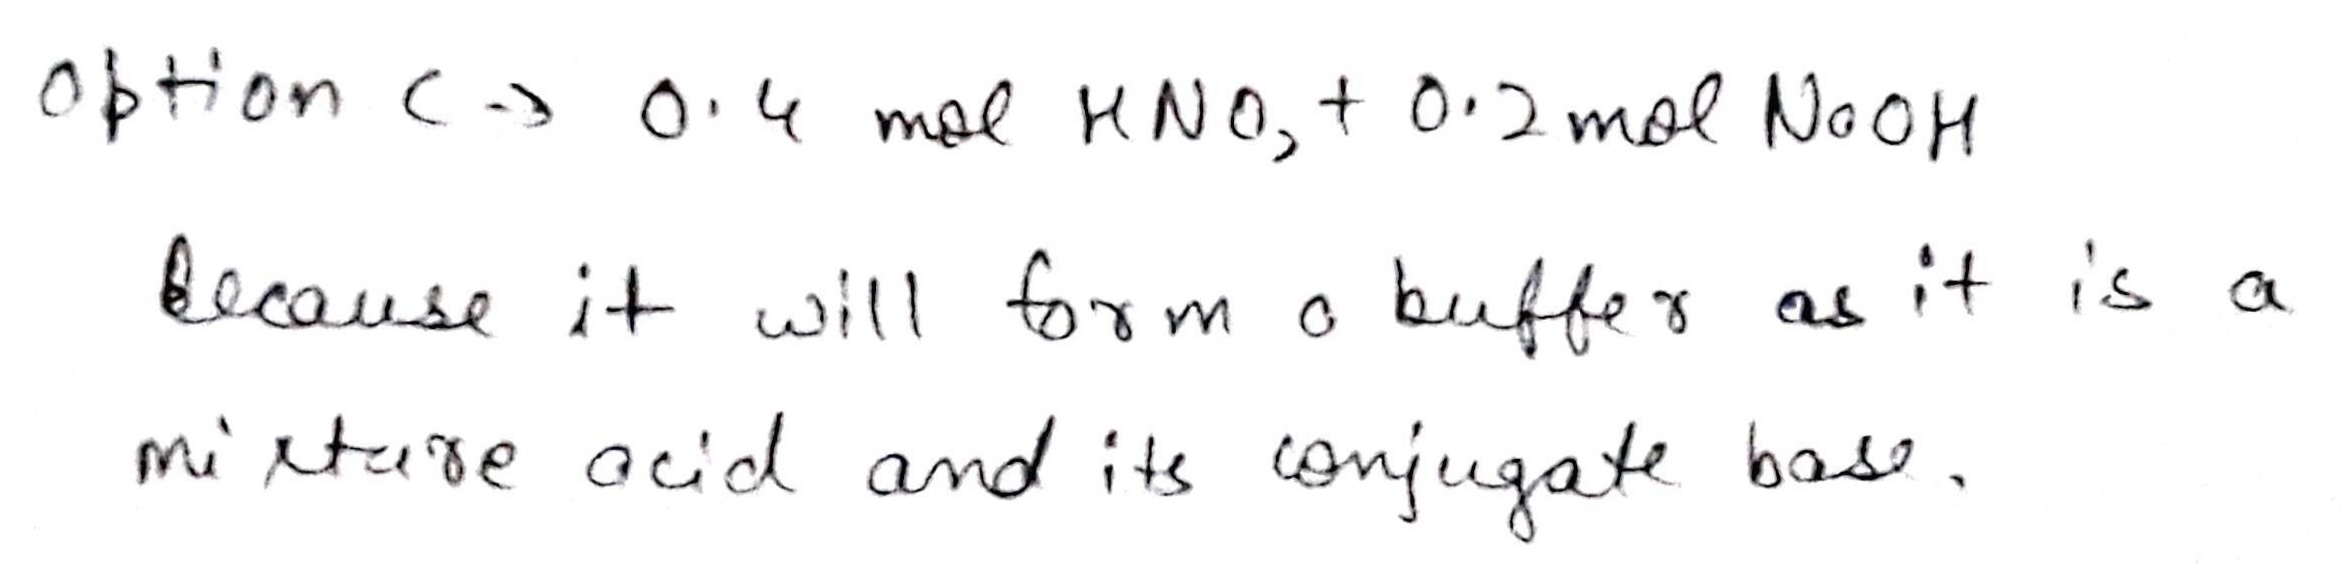 Option C → 0.4 mol HNO₂ + 0.2 mol NaOH
because it will form a buffer as it is a
mixture acid and its conjugate base.